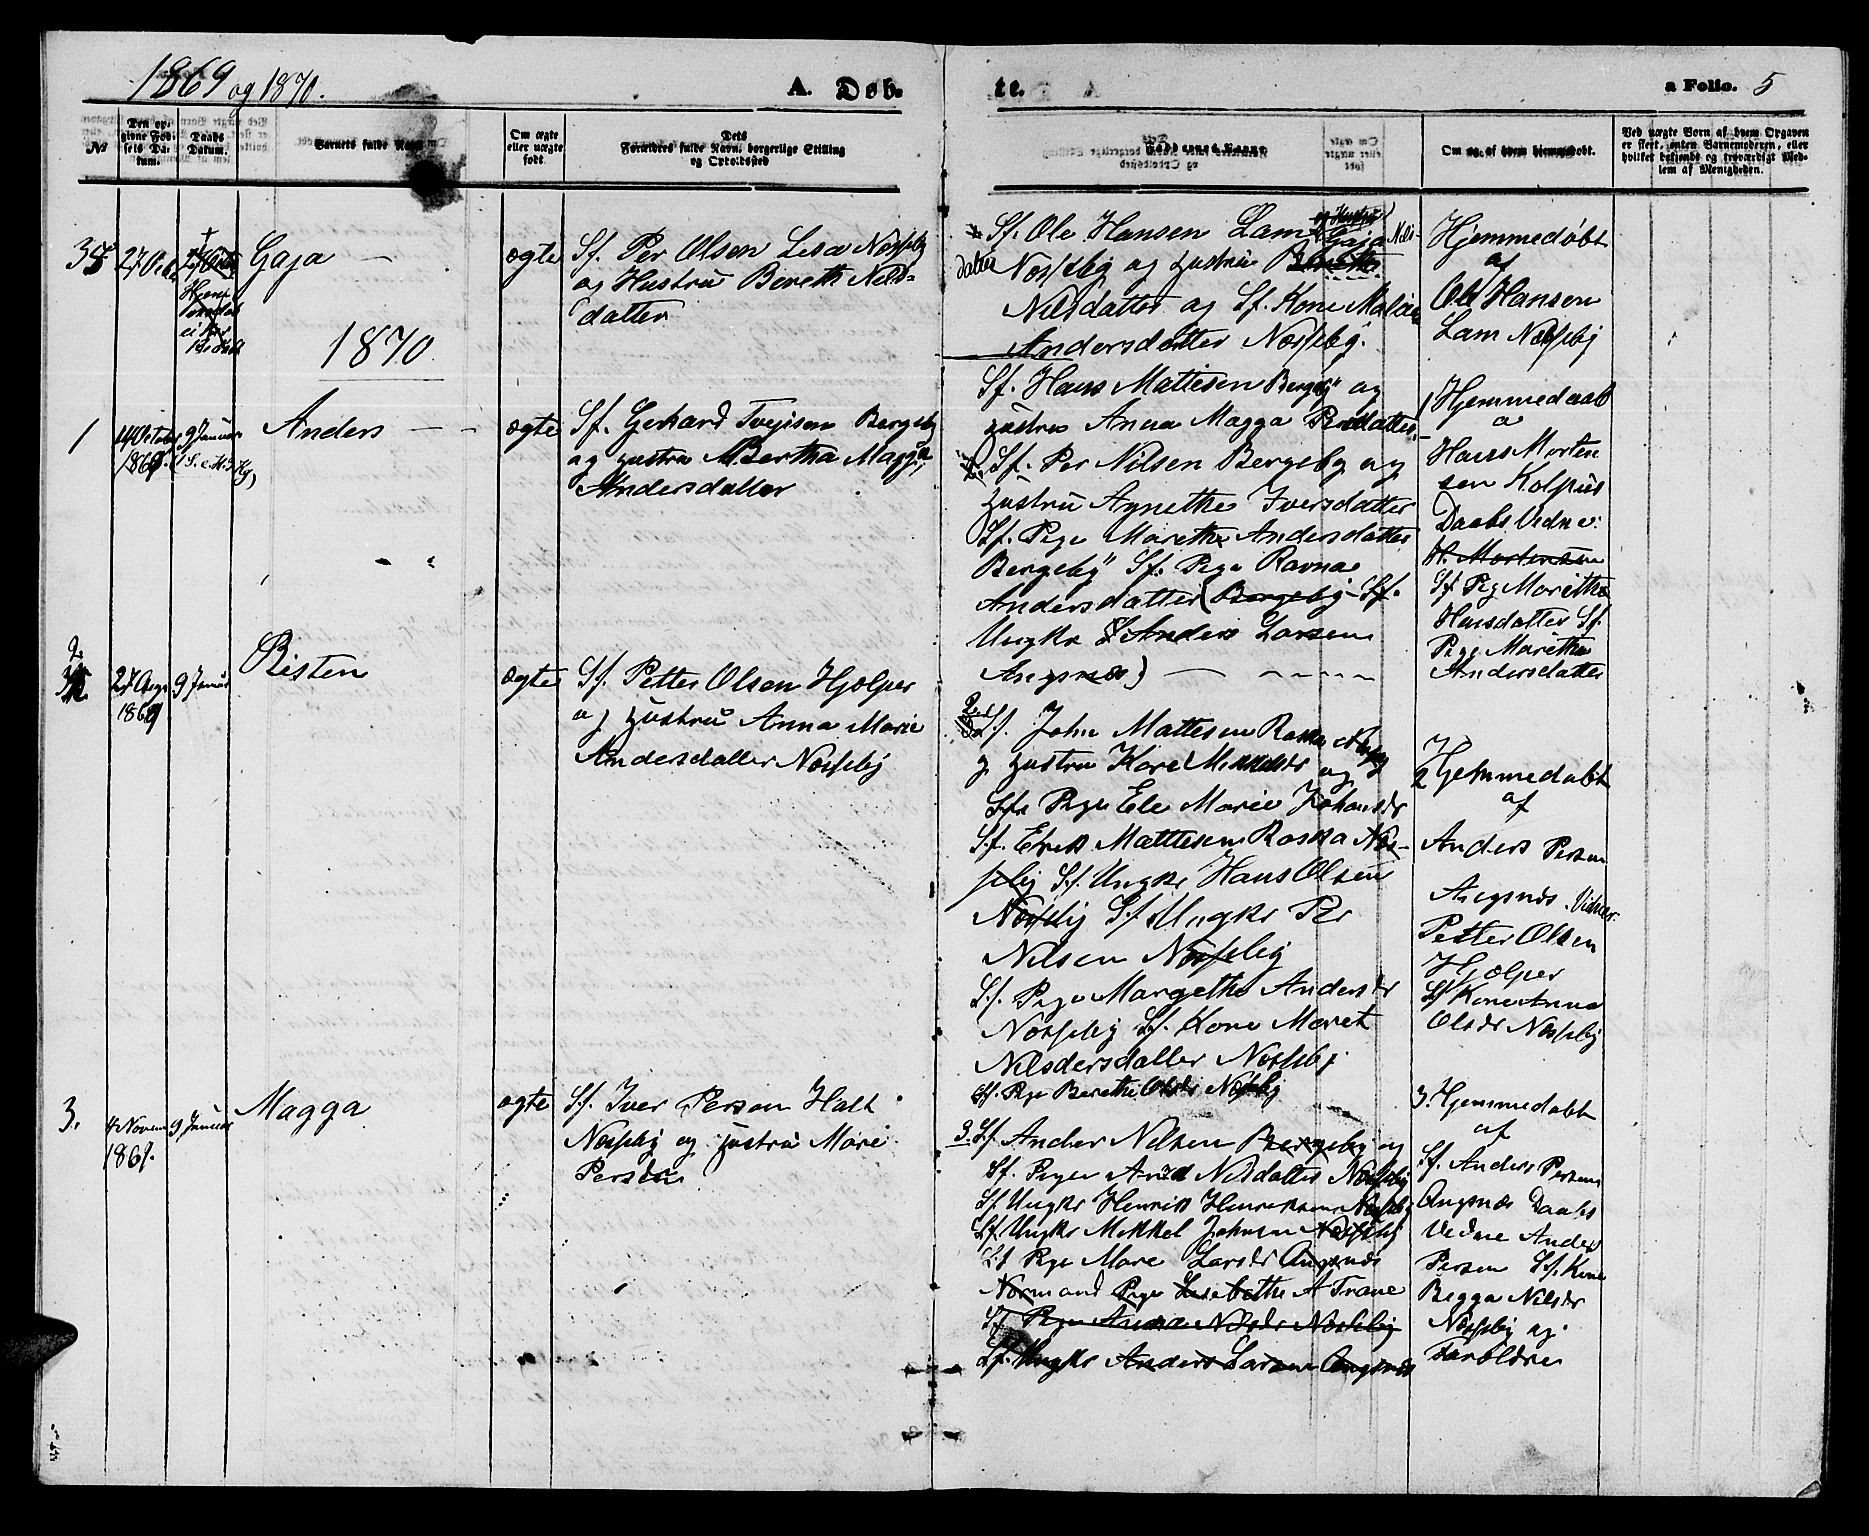 1869 og 1870.
A. Døb-
te.
a Folio. 5
№
Den op-
givne Fød-
sels Da-
tum.
Daabs
Datum.
Barnets fulde Navn.
Om ægte
eller uægte
født.
Dets
Forældres fulde Navn, borgerlige Stilling
og Opholdssted
Faddernes Navne
Om og af hvem hjemmedøbt.
Ved uægte Børn af hvem Opgaven
er skeet, enten Barnemoderen, eller
hvilket bekjendt og troværdigt Med-
lem af Menigheden.
Gaja
ægte
Sf. Per Olsen Næsseby
og Hustru Bereth Nils-
datter
Sf. Ole Hansen Lam og Hustru Gaja Nils-
datter Næsseby og Hustru
Nilsdatter og Sf. Kone
Andersdatter Næsseby.
Hjemmedøbt
af
Ole Hansen
Lam Næsseby
1870
1
14 October
1869.
9 Januar
Anders
ægte
Sf. Gerhard Bergeby
og Hustru Bertha Magga
Andersdatter
Sf. Hans Mattisen Bergeby og
Hustru Anna Magga
Sf. Per Nilsen Bergeby og
Hustru Agnethe Iversdatter
Sf. Pige Marethe Andersdatter
Bergeby Sf. Pige Ravna
Andersdatter (Bergeby Sf.
Ungkr Anders Larsen
Angsnæs)
1 Hjemmedøbt
a
Hans Morten
sen Kolpus
Daabs Vidne:
H. Mortensen
Sf Pig Marithe
Hansdatter Sf.
Pige Marithe
Andersdatter
2.
27 Aug
1869
9 Januar
Risten
ægte
Sf. Petter Olsen Hjelper
og Hustru Anna Marie
Andersdatter Næsseby
2 Sf. John Mattesen Raska
og Hustru Kore og
Sf. Pige Ele Marie Johansdr
Sf. Erik Mattesen Raska Næs-
seby Sf. Ungkr Hans Olsen
Næsseby Sf Ungkr Per
Nilsen Næsseby
Sf. Pige Margethe Andersdr
Næsseby Sf. Kone Maret
Nilsdersdatter Næsseby.
Sf. Pige Berethe Olsdr Næsseby
2 Hjemmedøbt
af
Anders Persen
Angsnæs. Vidner
Petter Olsen
Hjælper
Sf Kone Anna
Olsdr Næsseby
3.
4 Novem
1869.
9 Januar
Magga
ægte
Sf. Iver Persen Halt
Næsseby og Hustru Mari
Persdr
3. Sf. Ander Nilsen Bergeby og
Sf. Pigen Nilsdatter Næsseby
Sf Ungkr Henrik Henriksen Næsseby
Sf Ungkr Mikkel Johnsen Næsseby
Sf Pige Mare Larsdr Angsnæs
Normand Pige Lisebethe A Trane
Sf. Pige Anna Nilsdr Næsseby
Sf. Ungkr Anders Larsen Angsnæs
3. Hjemmedøbt
af
Sf. Anders Persen
Angsnæs Daabs
Vidne Anders
Persen Sf. Kone
Begga Nilsdr
Næsseby og
Forældre